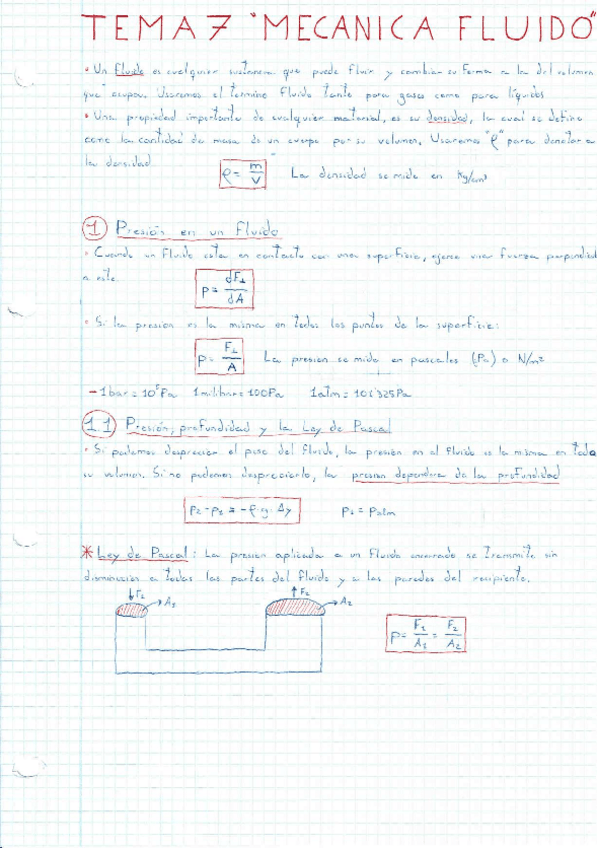 TEMA 7 "MECANICA FLUIDO"
• Un fluido es cualquier sustancia que puede fluir y cambiar su forma a la del volumen
que ocupa. Usaremos el termino fluido tanto para gases como para líquidos
• Una propiedad importante de cualquier material, es su densidad, la cual se define
como la cantidad de masa de un cuerpo por su volumen. Usaremos "ρ" para denotar a
la densidad.
ρ = m/V La densidad se mide en Kg/cm³
1 Presión en un Fluido
• Cuando un fluido esta en contacto con una superficie, ejerce una fuerza perpendicul
a este.
p = dF⊥/dA
• Si la presion es la misma en todos los puntos de la superficie:
p = F⊥/A La presion se mide en pascales (Pa) o N/m²
- 1 bar = 10⁵ Pa 1 milibar = 100 Pa 1 atm = 101'325 Pa
1.1 Presión, profundidad y la Ley de Pascal
• Si podemos despreciar el peso del fluido, la presión en el fluido es la misma en todo
su volumen. Si no podemos despreciarlo, la presion dependera de la profundidad
P₂ - P₁ = -ρ·g·Δy P₁ = Patm
* Ley de Pascal: La presion aplicada a un fluido encerrado se transmite sin
disminucion a todas las partes del fluido y a las paredes del recipiente.
F₁ A₁ F₂ A₂
p = F₁/A₁ = F₂/A₂